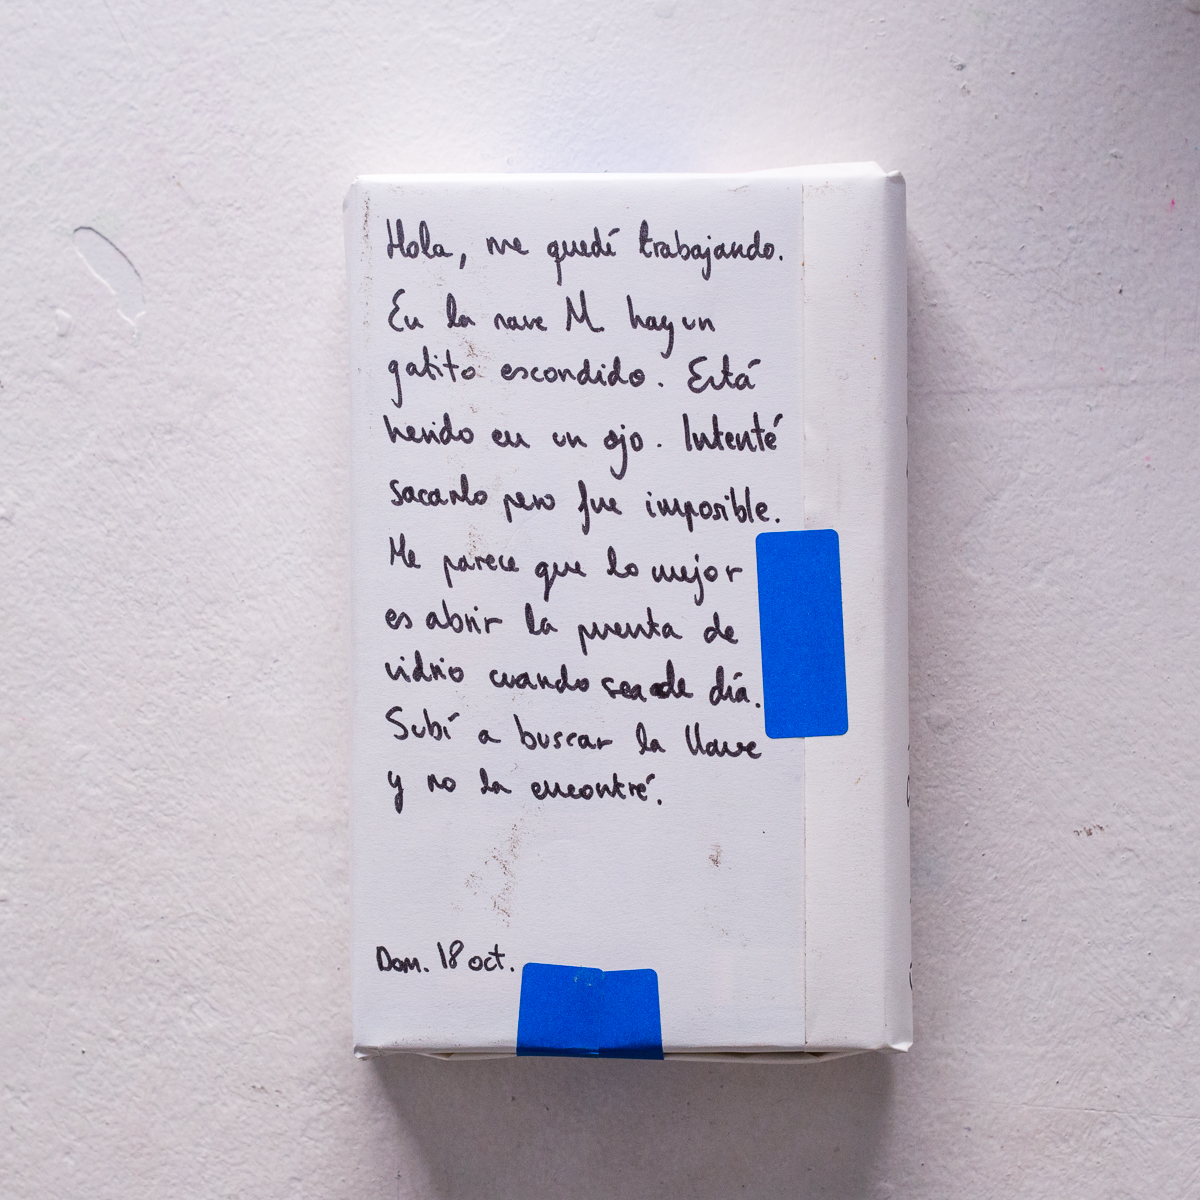 Hola, me quedé trabajando.
En la nave M hay un
gatito escondido. Está
herido en un ojo. Intenté
sacarlo pero fue imposible.
Me parece que lo mejor
es abrir la puerta de
vidrio cuando sea de día.
Subí a buscar la llave
y no la encontré.
Dom. 18 oct.